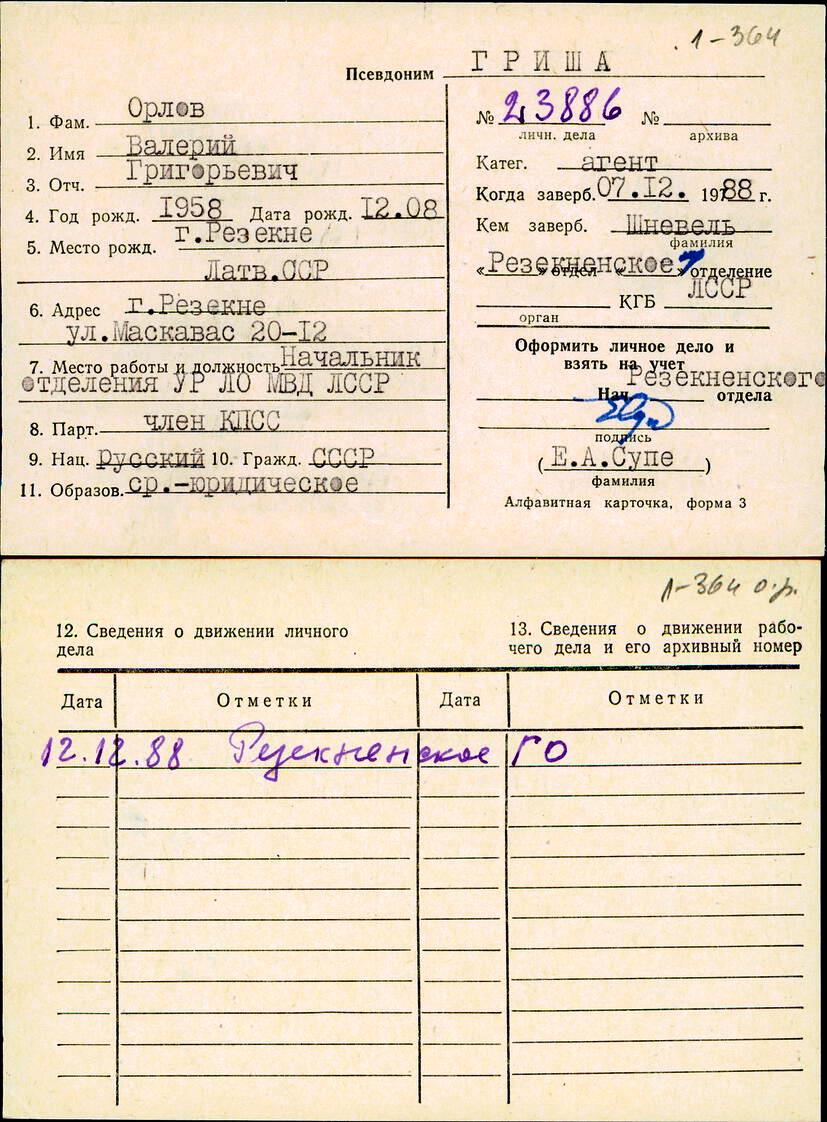 1-364
Псевдоним ГРИША
1. Фам. Орлов
2. Имя Валерий
3. Отч. Григорьевич
4. Год рожд. 1958 Дата рожд. 12.08
5. Место рожд. г.Резекне
Латв.ССР
6. Адрес г.Резекне
ул.Маскавас 20-12
7. Место работы и должность Начальник
отделения УР ЛО МВД ЛССР
8. Парт. член КПСС
9. Нац. русский 10. Гражд. СССР
11. Образов. ср.-юридическое
№ 23886 №
личн. дела архива
Катег. агент
Когда заверб. 07.12. 1988 г.
Кем заверб. Шневель
фамилия
«Резекненское» отдел « » отделение
КГБ ЛССР
орган
Оформить личное дело и
взять на учет
Резекненского
Нач. отдела
подпись
(Е.А.Супе)
фамилия
Алфавитная карточка, форма 3
1-364 о.р.
12. Сведения о движении личного
дела
13. Сведения о движении рабо-
чего дела и его архивный номер
Дата Отметки Дата Отметки
12.12.88 Резекненское ГО